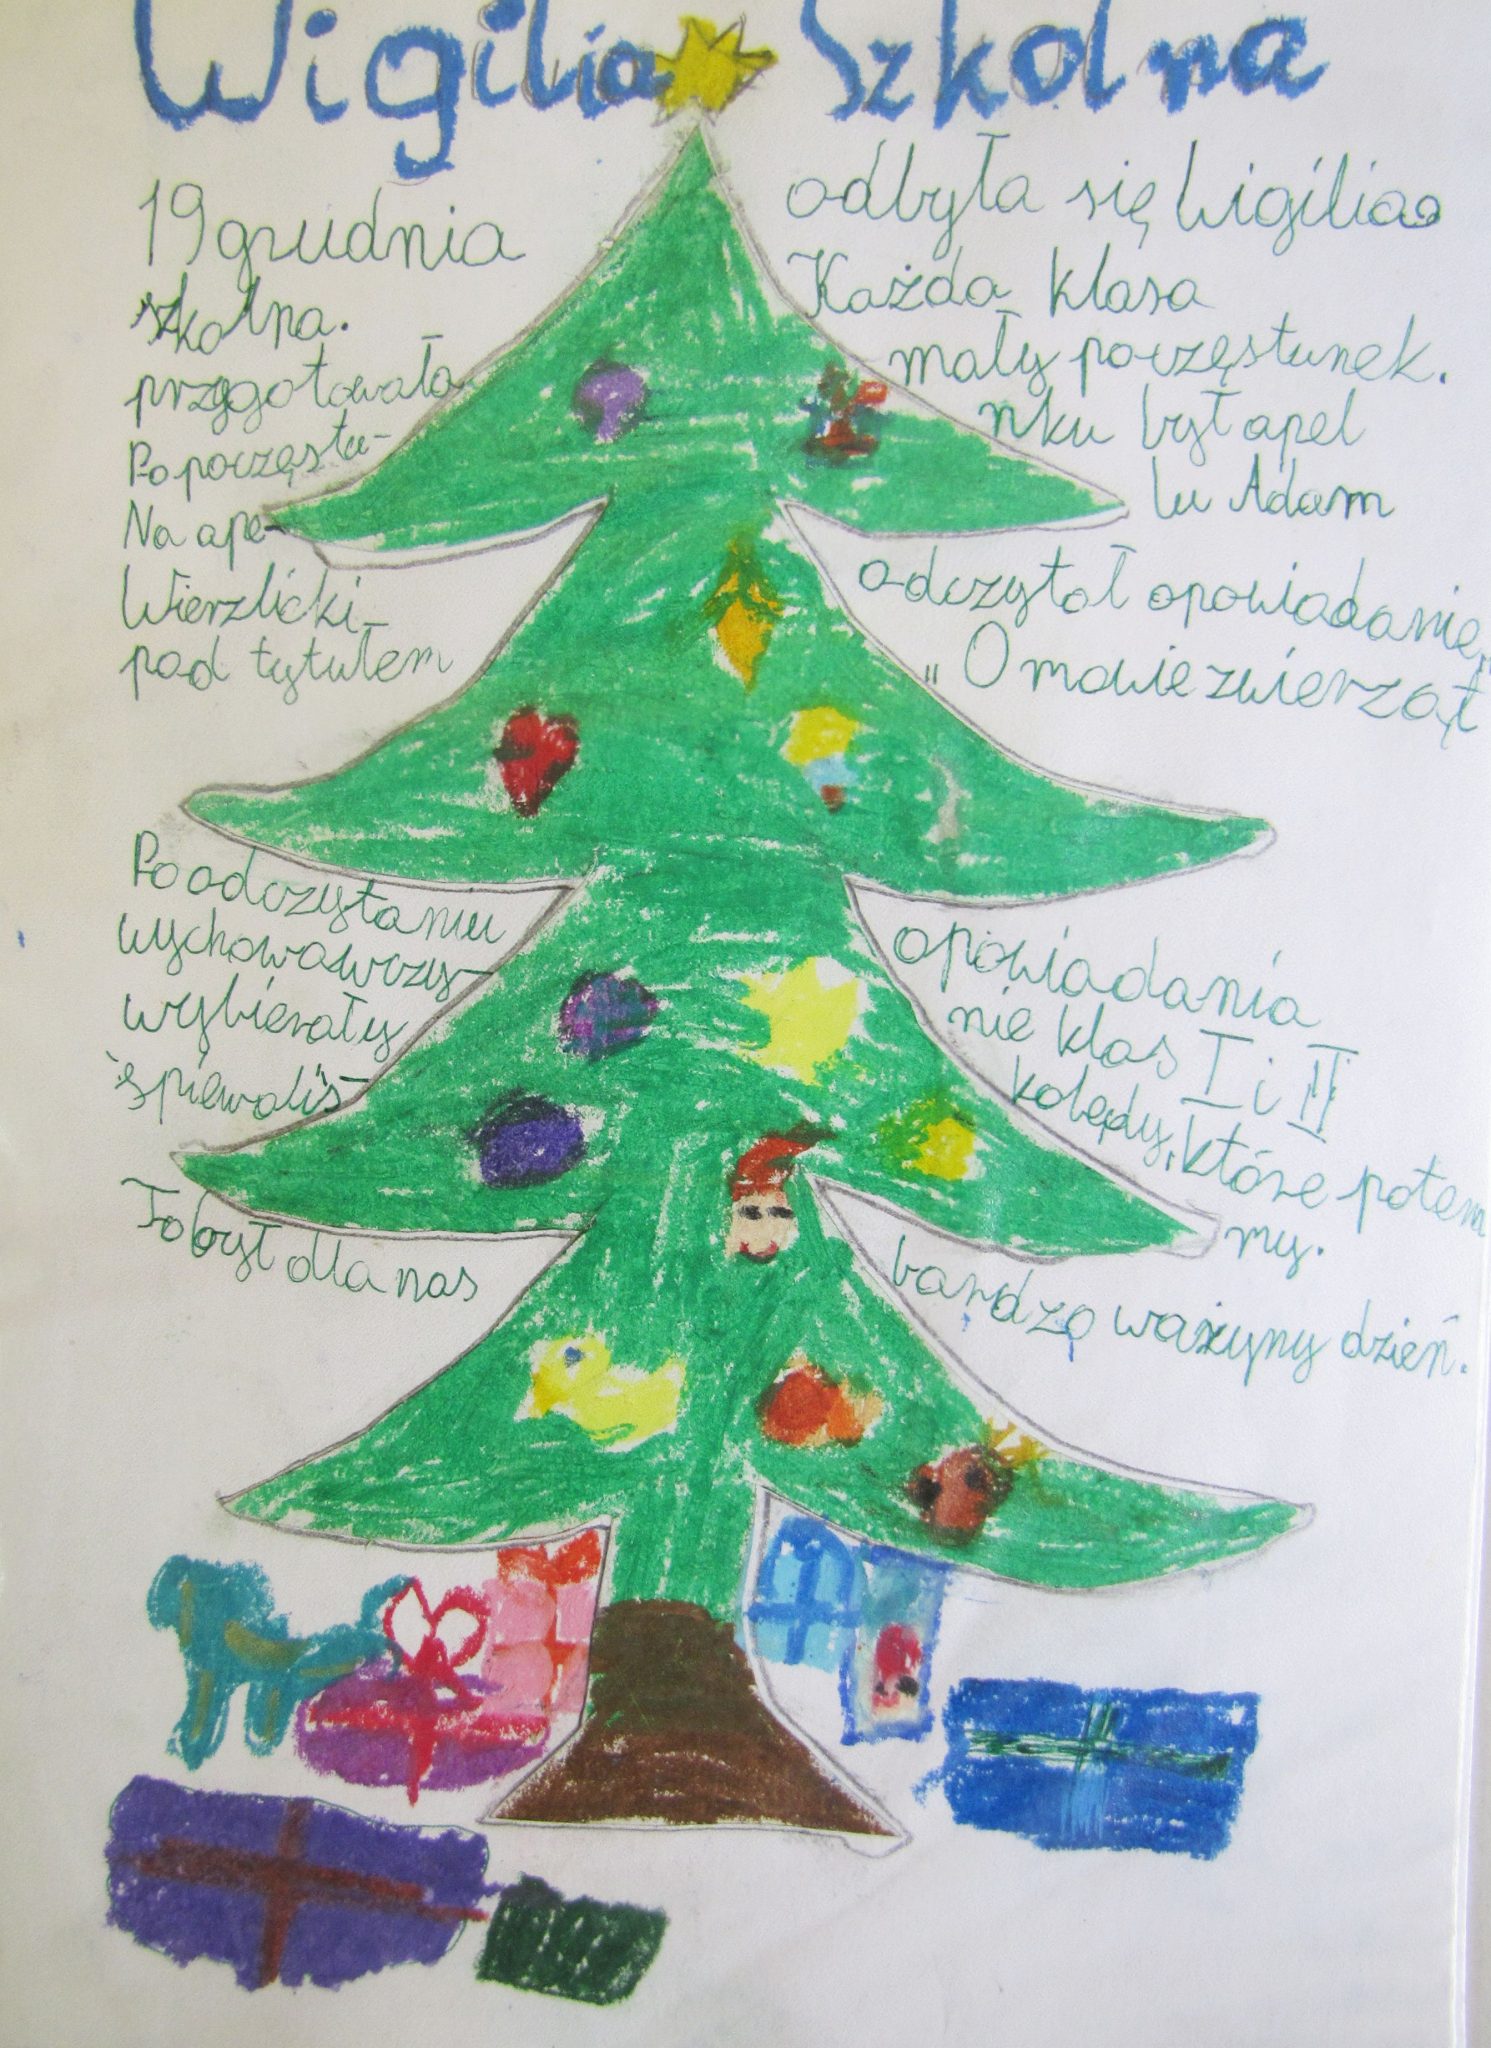 Wigilia Szkolna
19 grudnia odbyła się Wigilia
szkolna. Każda klasa
przygotowała mały poczęstunek.
Po poczęstu- nku był apel
Na ape- lu Adam
Wierzlicki odczytał opowiadanie
pod tytułem „O mowie zwierząt"
Po odczytaniu opowiadania
wychowawczy- nie klas I i II
wybierały kolędy, które potem
śpiewaliś- my.
To był dla nas bardzo ważyny dzień.